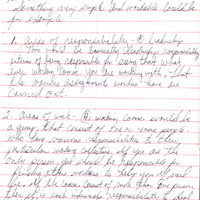 Something very simple and workable could be
for example
1. Areas of responsibility - @ Leadership
This would be basically leadership responsibility
interms of being responsible for seeing that what
ever working comm. you are working with, that
the necessary assignments workers have are
carried out.
2. Areas of work - @ working comm. would be
a group that consist of one or some people.
who have responsibilities to their
particular working collective. If you are the
only person, you should be responsible for
finding other workers to help you if need
be. If the comm. consist of more than one person
then it is each individual responsibilities to deal